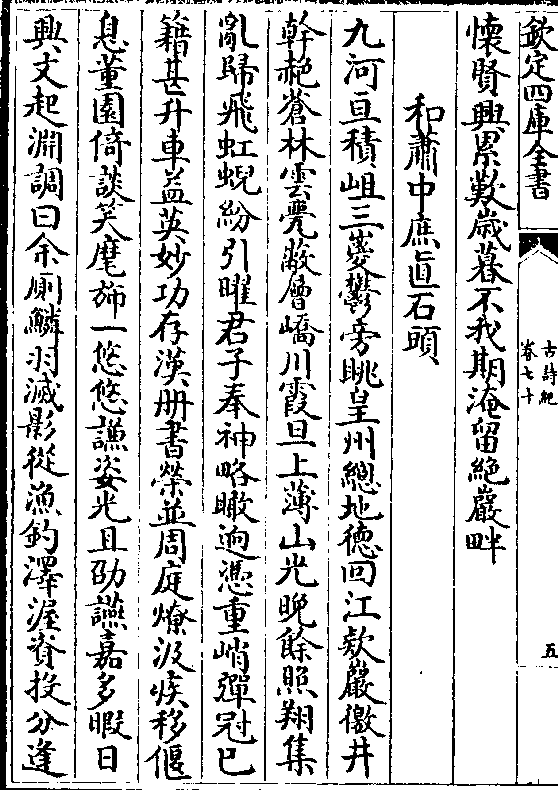 欽定四庫全書
古詩紀
卷七十
五
懷賢興累歎歳暮不我期淹留絶巖畔
和蕭中庶直石頭
九河亘積岨三嵏鬱旁眺皇州總地德回江欵巖徼井
幹艳蒼林雲甍蔽層嶠川霞旦上薄山光晚餘照翔集
亂歸飛虹蜺紛引曜君子奉神略瞰逈憑重峭彈冠已
籍甚升車益英妙功存漢册書榮並周庭燎汲疾移偃
息董園倚談笑麾斾一悠悠謙姿光且劭讌嘉多暇日
興文起淵調曰余廁鱗羽滅影從漁釣澤渥資投分逢